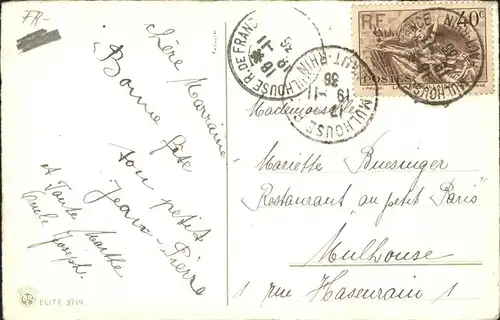 FR-
chère Marraine
"Bonne fête"
ton petit
Jean-Pierre
et Tante Marthe
Oncle Joseph.
ELITE 3749
RF
40c
POSTES
MULHOUSE R. DE FRANCE
18 11
36
MULHOUSE
HAUT-RHIN
19-11
36
Mademoiselle
Mariette Buesinger
Restaurant "au petit Paris"
Mulhouse
1 rue Hasenrain 1